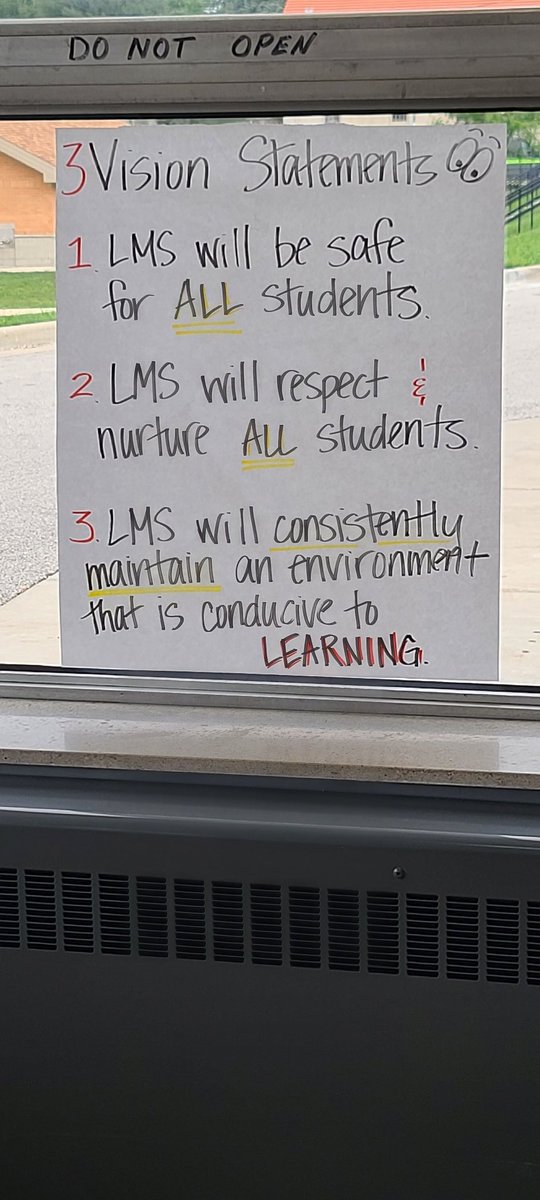 DO NOT OPEN
3 Vision Statements
1. LMS will be safe
for ALL students.
2. LMS will respect &
nurture ALL students.
3. LMS will consistently
maintain an environment
that is conducive to
LEARNING.